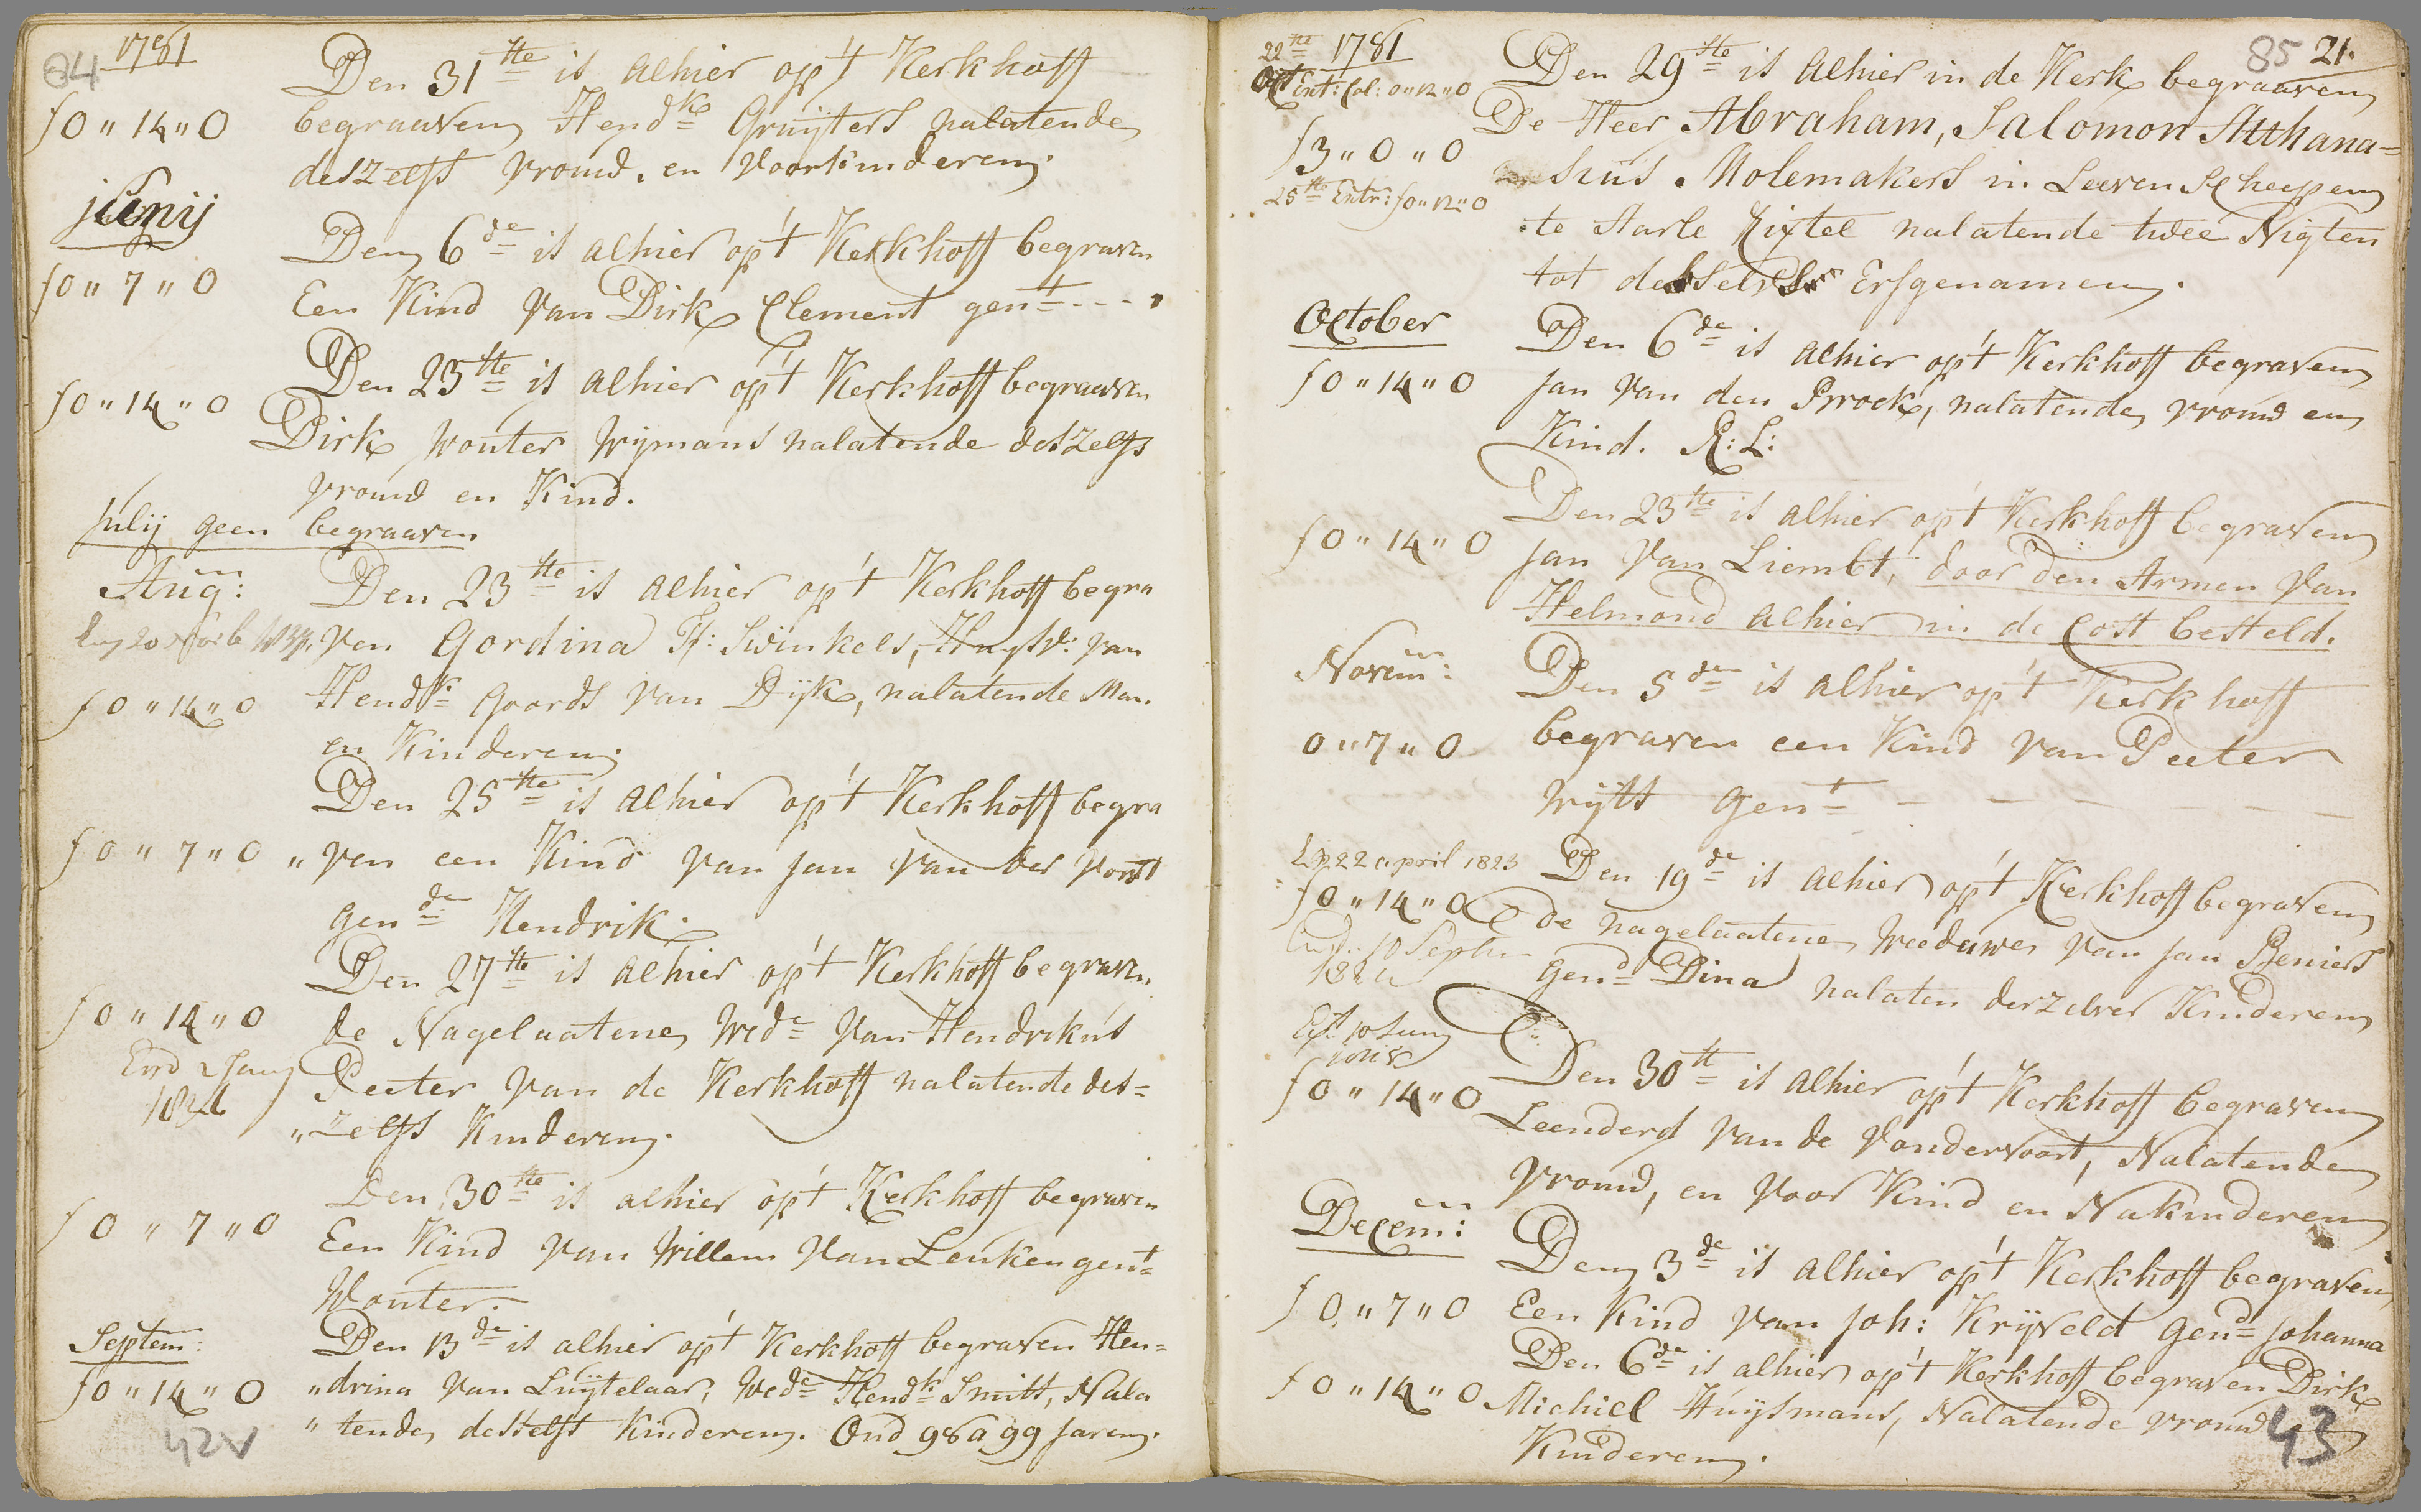 84 1781
Den 31ste is alhier op't Kerkhoff
ƒ0"14"0 begraaven Hendk Gruijters nalatende
deszelfs vrouw, en voorkinderen.
junij
Den 6de is alhier op't Kerkhoff begraven
ƒ0"7"0 Een Kind van Dirk Clement gent - - -
Den 25ste is alhier op't Kerkhoff begraaven
ƒ0"14"0 Dirk Wouter Wijmans nalatende deszelfs
vrouw en Kind.
Julij geen begraaven
Aug: Den 23ste is alhier op't Kerkhoff begra
ven Gordina F: Swinkels, Huysv: van
ƒ0"14"0 Hendk Goords van Dijk, nalatende Man
en Kinderen.
Den 25ste is alhier op't Kerkhoff begra
ƒ0"7"0 "ven een Kind van Jan van der Vorst
gende Hendrik.
Den 27ste is alhier op't Kerkhoff begraven
ƒ0"14"0 de Nagelaatene Wede van Hendrikus
Peeter van de Kerkhoff nalatende des=
"zelfs Kinderen.
Den 30ste is alhier op't Kerkhoff begraven
ƒ0"7"0 Een Kind van Willem van Leuken gent
Wouter.
Septem: Den 13de is alhier op't Kerkhoff begraven Hen=
ƒ0"14"0 "drina van Luijtelaar, Wede Hendk Smits, Nala
"tende desselfs Kinderen. Oud 98 a 99 Jaren.
42V
1781 85 21.
22ste
Oct Ent: Col: 0"12"0 Den 29ste is alhier in de Kerk begraaven
ƒ3"0"0 De Heer Abraham, Salomon Atthana=
25ste Entr: ƒ0"12"0 sius Molemakers in Leeven Scheepen
te Aarle Rixtel nalatende twee Nigten
tot desselvs Erfgenamen.
October Den 6de is alhier op't Kerkhoff begraven
ƒ0"14"0 Jan van den Broek, nalatende vrouw en
Kind. R:L:
Den 23ste is alhier op't Kerkhoff begraven
ƒ0"14"0 Jan van Liembt, door den Armen van
Helmond alhier in de Cost besteld.
Novem: Den 5de is alhier op't Kerkhoff
0"7"0 begraven een Kind van Peeter
Wijtt gent - - - - -
22 april 1823 Den 19de is alhier op't Kerkhoff begraven
ƒ0"14"0 de nagelaatene Weeduwe van Jan Reniers
10 Septem gend Dina nalaten derzelver Kinderen
Den 30st is alhier op't Kerkhoff begraven
ƒ0"14"0 Leenderd van de Vondervoort, Nalatende
Vrouw, en Voor Kind en Nakinderen
Decem: Den 3de is alhier op't Kerkhoff begraven
ƒ0"7"0 Een Kind van Joh: Krijveld gend Johanna
Den 6de is alhier op't Kerkhoff begraven Dirk
ƒ0"14"0 Michiel Huijsmans, Nalatende vrouw
Kinderen.
43